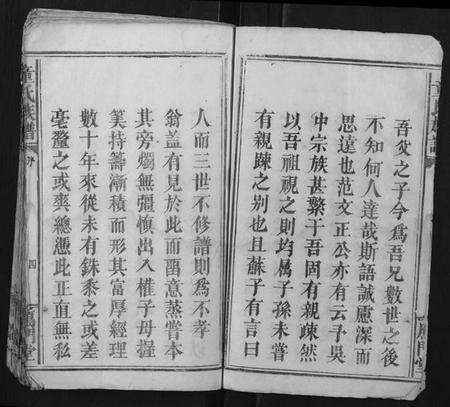 吾父之子今為吾兄數世之後
不知何人達哉斯語誠慮深而
思遠也范文正公亦有云予吳
中宗族甚繁于吾固有親疎然
以吾祖視之則均屬子孫未嘗
有親疎之别也且蘇子有言曰
人而三世不修譜則為不孝
翁蓋有見於此而留意蒸嘗本
其旁燭無彊慎出入權子母握
筭持籌漸積而形其富厚經理
數十年來從未有銖黍之或差
毫釐之或爽總憑此正直無私
氏族譜
序
四